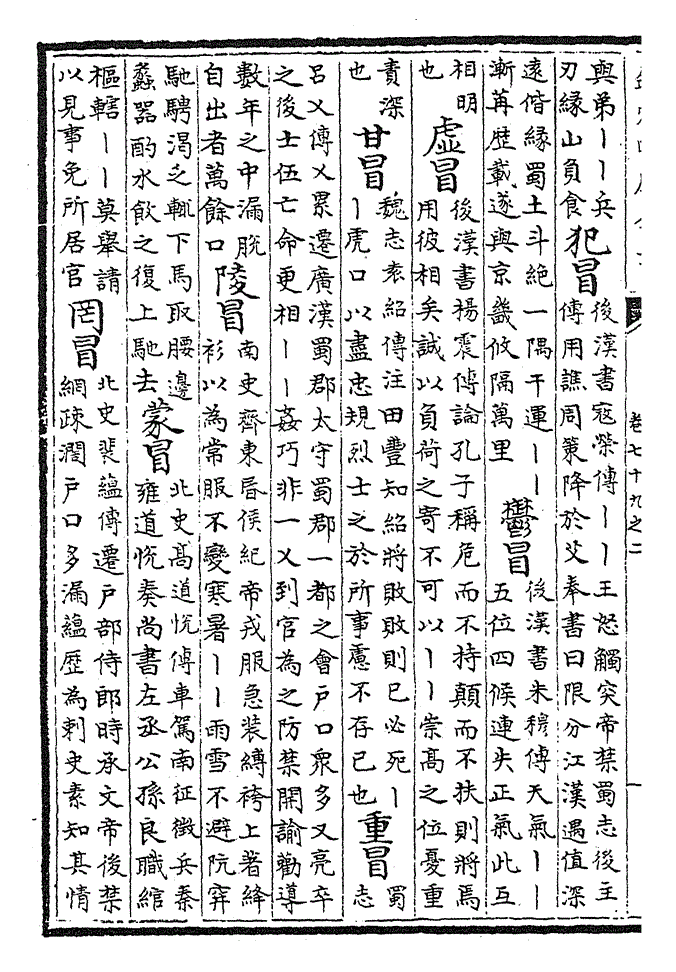 卷七十九之二
與弟丨丨兵
刃緣山負食
犯冒
後漢書寇榮傳丨丨王怒觸突帝禁蜀志後主
傳用譙周策降於艾奉書曰限分江漢遇值深
遠偕緣蜀土斗絕一隅干運丨丨
漸苒歴載遂與京畿攸隔萬里
鬱冒
後漢書朱穆傳天氣丨丨
五位四候連失正氣此互
相明
也
虛冒
後漢書楊震傳論孔子稱危而不持顛而不扶則將焉
用彼相矣誠以負荷之寄不可以丨丨崇高之位憂重
責深
也
甘冒
魏志袁紹傳注田豐知紹將敗敗則已必死丨
丨虎口以盡忠規烈士之於所事慮不存已也
重冒
蜀
志
呂乂傳乂累遷廣漢蜀郡太守蜀郡一都之會戶口衆多又亮卒
之後士伍亡命更相丨丨姦巧非一乂到官為之防禁開諭勸導
數年之中漏脫
自出者萬餘口
陵冒
南史齊東昏侯紀帝戎服急裝縛袴上著絳
衫以為常服不變寒暑丨丨雨雪不避阬穽
馳騁渴乏輒下馬取腰邊
蠡器酌水飲之復上馳去
蒙冒
北史高道悅傳車駕南征徵兵秦
雍道悅奏尚書左丞公孫良職綰
樞轄丨丨莫舉請
以見事免所居官
罔冒
北史裴蘊傳遷戶部侍郎時承文帝後禁
網疎濶戶口多漏蘊歴為刺史素知其情